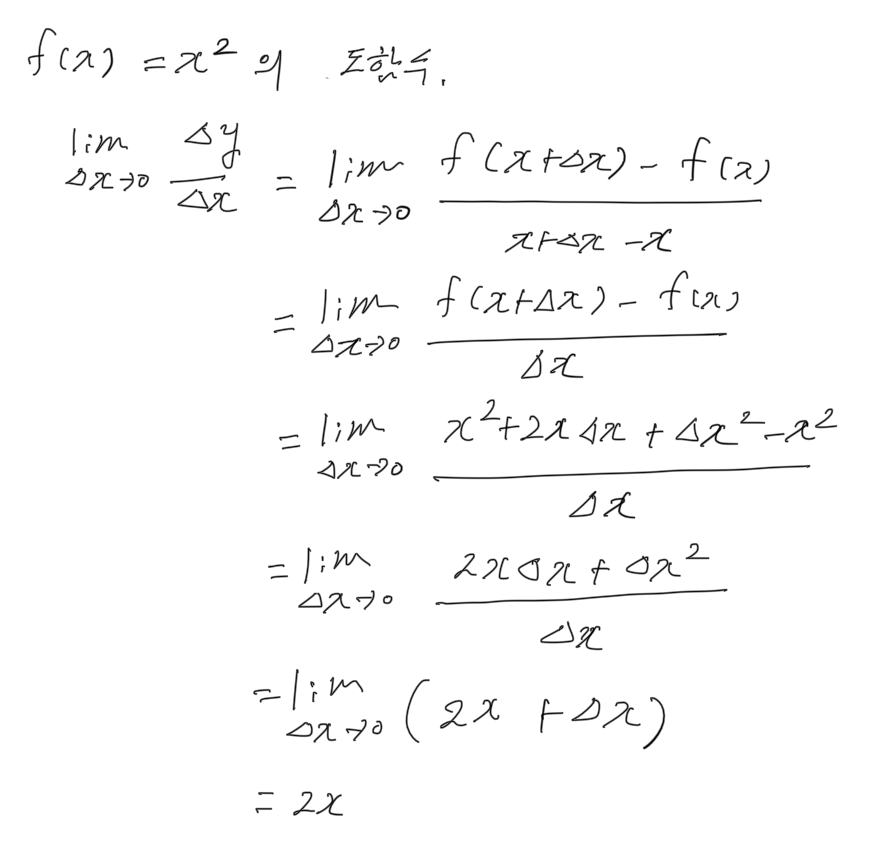 f(x) = x² 의 도함수.
lim Δx→0 Δy/Δx = lim Δx→0 (f(x+Δx) - f(x))/(x+Δx - x)
= lim Δx→0 (f(x+Δx) - f(x))/Δx
= lim Δx→0 (x²+2xΔx + Δx² - x²)/Δx
= lim Δx→0 (2xΔx + Δx²)/Δx
= lim Δx→0 (2x + Δx)
= 2x